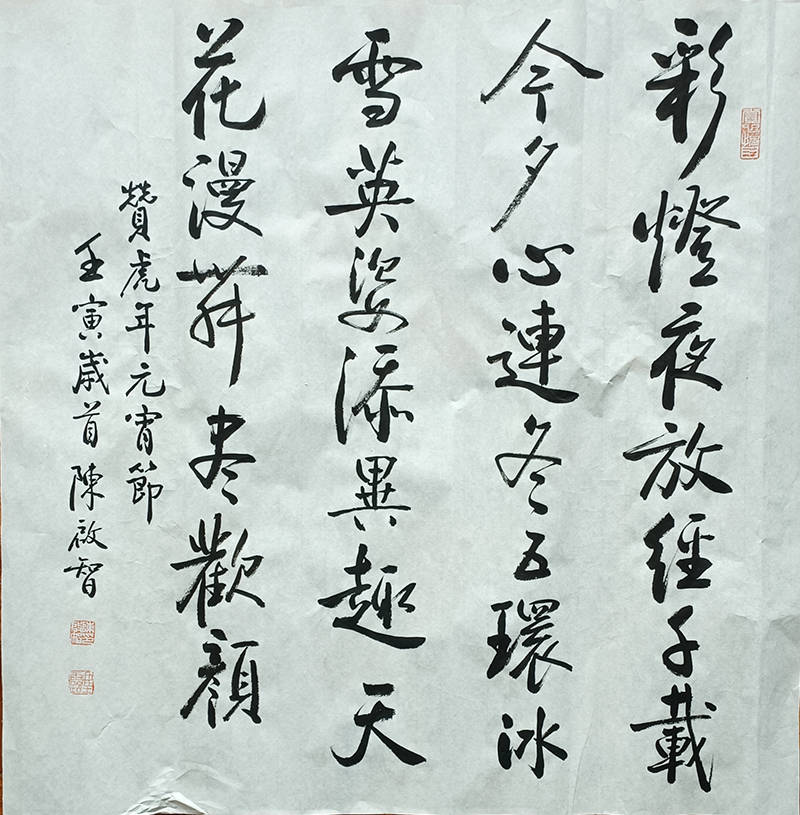 彩燈夜放經千載
今夕心連冬五環冰
雪英姿添異趣天
花漫舞尽歡顔
贊虎年元宵節
壬寅歲首陳啟智